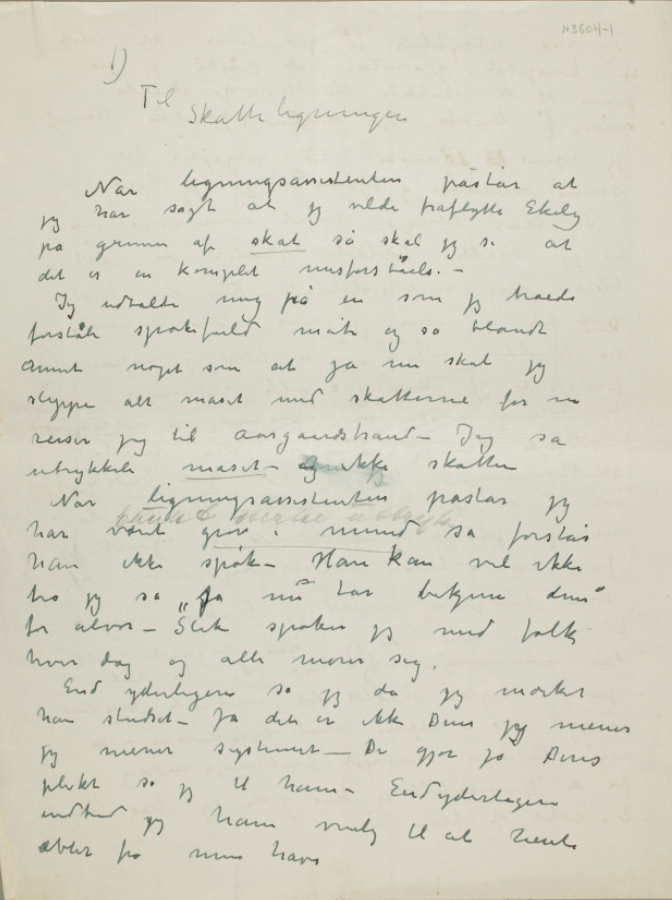 N3604-1
1)
Til
Skatteligningen
Når ligningsassistenten påstår at
jeg har sagt at jeg vilde fraflytte Ekely
på grunn af skat så skal jeg si at
det er en komplet misforståelse. –
Jeg udtalte mig på en som jeg troede
forståelig spøkefuld måte og sa blandt
annet noget som at ja nu skal jeg
slippe alt maset med skatterne for nu
reiser jeg til Aasgaardstrand – Jeg sa
utrykkeli maset – og ikke skatten
Når ligningsassistenten påstår jeg
har været grov i mund så forstår
han ikke spøk – Han kan vel ikke
tro jeg sa „Ja nu tar dem"
for alvor – Slik spøker jeg med folk
hver dag og alle morer sig.
End yderligere sa jeg da jeg mærket
han studset – Ja det er ikke Dem jeg mener
jeg mener systemet – De gjør jo Deres
plikt sa jeg til ham – End yderligere
indbød jeg ham venlig til at hente
æbler fra min have